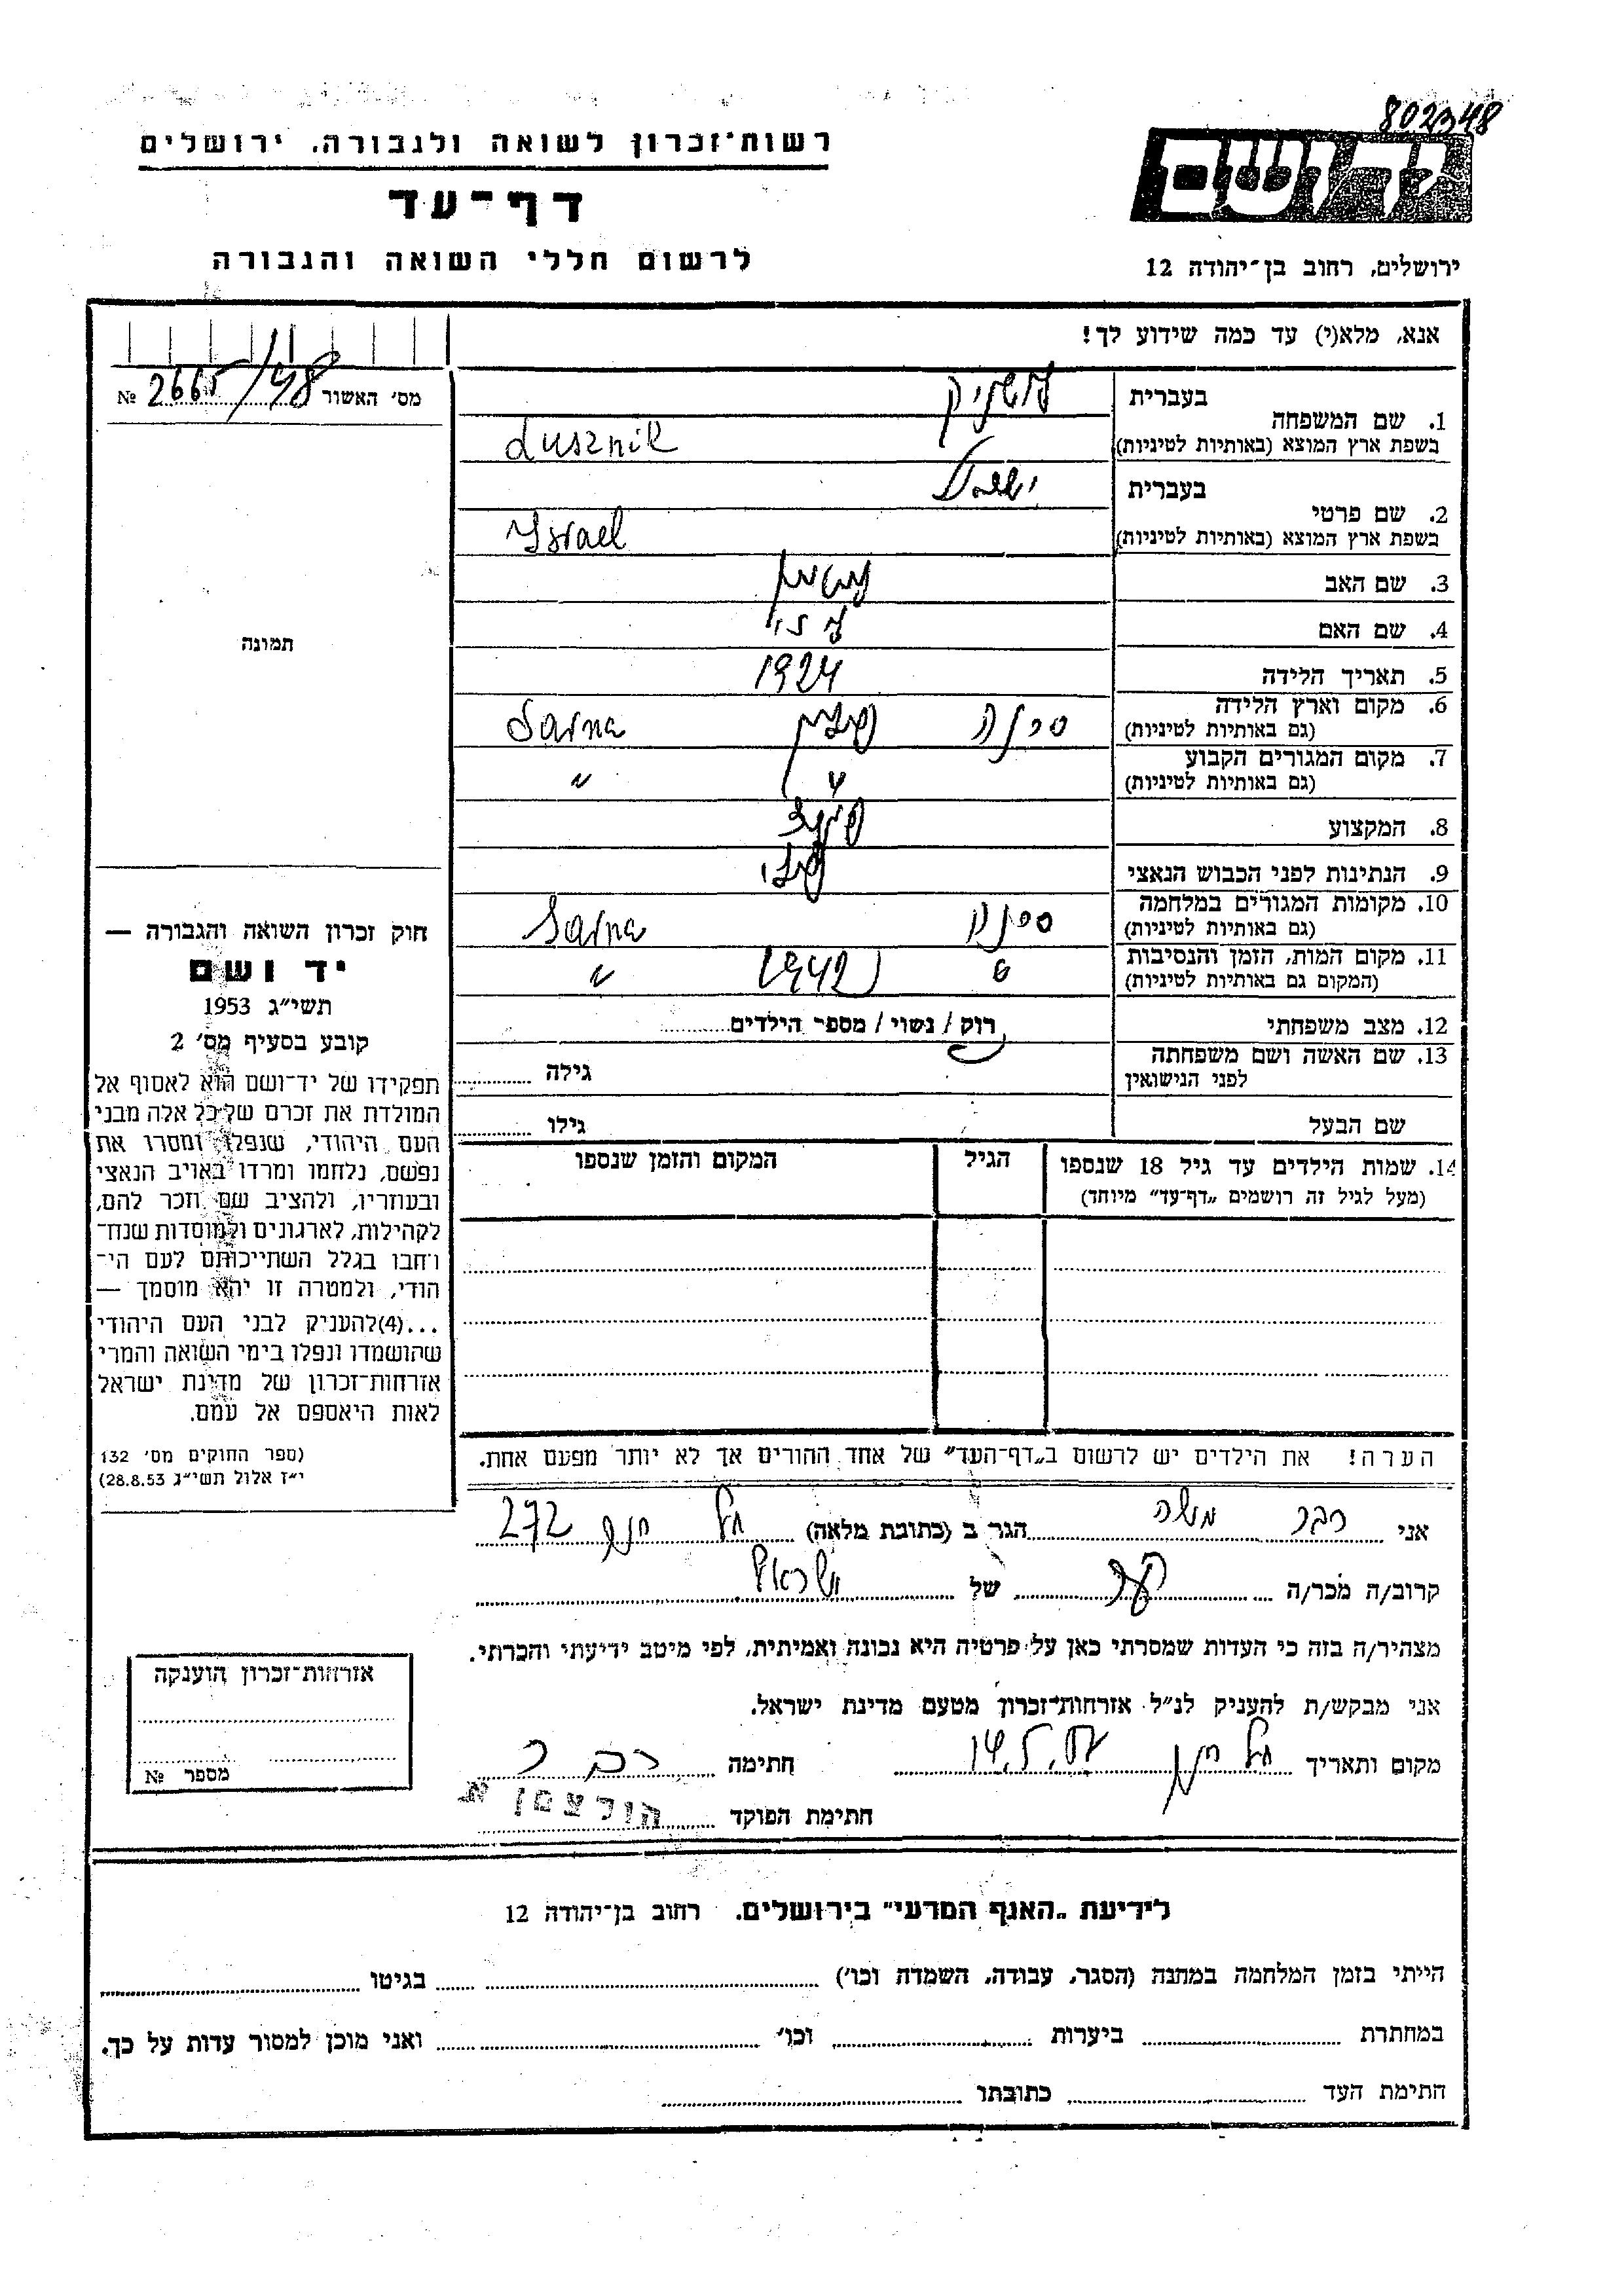 802348
רשות־זכרון לשואה ולגבורה. ירושלים
יד ושם
דף־עד
לרשום חללי השואה והגבורה
ירושלים, רחוב בן־יהודה 12
אנא, מלא(י) עד כמה שידוע לך!
מס׳ האשור 2665/48 №
בעברית לושניק
1. שם המשפחה
בשפת ארץ המוצא (באותיות לטיניות) Lusznik
בעברית ישראל
2. שם פרטי
בשפת ארץ המוצא (באותיות לטיניות) Israel
3. שם האב
4. שם האם
תמונה
5. תאריך הלידה 1924
6. מקום וארץ הלידה סרנה פולין Sarna
(גם באותיות לטיניות)
7. מקום המגורים הקבוע " "
(גם באותיות לטיניות)
8. המקצוע
9. הנתינות לפני הכבוש הנאצי פולני
10. מקומות המגורים במלחמה סרנה Sarna
(גם באותיות לטיניות)
11. מקום המות, הזמן והנסיבות " 1942 "
(המקום גם באותיות לטיניות)
12. מצב משפחתי רוק / נשוי / מספר הילדים
13. שם האשה ושם משפחתה גילה
לפני הנישואין
שם הבעל גילו
14. שמות הילדים עד גיל 18 שנספו הגיל המקום והזמן שנספו
(מעל לגיל זה רושמים „דף־עד״ מיוחד)
חוק זכרון השואה והגבורה —
יד ושם
תשי״ג 1953
קובע בסעיף מס׳ 2
תפקידו של יד־ושם הוא לאסוף אל
המולדת את זכרם של כל אלה מבני
העם היהודי, שנפלו ומסרו את
נפשם, נלחמו ומרדו באויב הנאצי
ובעוזריו, ולהציב שם וזכר להם,
לקהילות, לארגונים ולמוסדות שנח־
רבו בגלל השתייכותם לעם הי־
הודי, ולמטרה זו יהא מוסמך —
...(4)להעניק לבני העם היהודי
שהושמדו ונפלו בימי השואה והמרי
אזרחות־זכרון של מדינת ישראל
לאות היאספם אל עמם.
(ספר החוקים מס׳ 132
י״ז אלול תשי״ג 28.8.53)
הערה! את הילדים יש לרשום ב„דף־העד״ של אחד ההורים אך לא יותר מפעם אחת.
אני רבר משה הגר ב (כתובת מלאה) תל חנן 272
קרוב/ה מכר/ה של ישראל
מצהיר/ה בזה כי העדות שמסרתי כאן על פרטיה היא נכונה ואמיתית, לפי מיטב ידיעתי והכרתי.
אני מבקש/ת להעניק לנ״ל אזרחות־זכרון מטעם מדינת ישראל.
מקום ותאריך תל חנן חתימה
חתימת הפוקד הורצמן א
אזרחות־זכרון הוענקה
מספר №
לידיעת „האגף המדעי״ בירושלים. רחוב בן־יהודה 12
הייתי בזמן המלחמה במחנה (הסגר, עבודה, השמדה וכו׳) בגיטו
במחתרת ביערות וכו׳ ואני מוכן למסור עדות על כך.
חתימת העד כתובתו